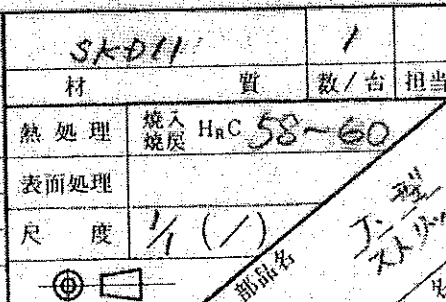 SKD11 1
材質 数/台 担当
熱処理 焼入 焼戻 HRC 58~60
表面処理
尺度 1/1 (/)
部品名